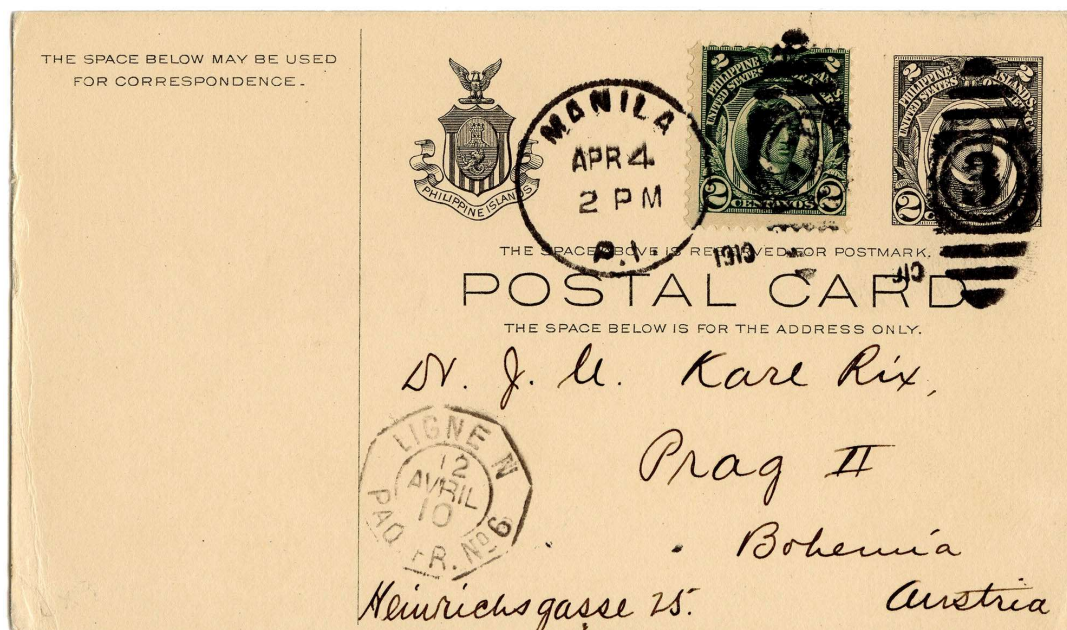 THE SPACE BELOW MAY BE USED
FOR CORRESPONDENCE.
PHILIPPINE ISLANDS
MANILA
APR 4
2 PM
P.I
1910
2 2
PHILIPPINE ISLANDS
UNITED STATES
2 CENTAVOS 2
2 2
PHILIPPINE ISLANDS
UNITED STATES
2
3
THE SPACE ABOVE IS RESERVED FOR POSTMARK.
POSTAL CARD
THE SPACE BELOW IS FOR THE ADDRESS ONLY.
Dr. J. U. Karl Rix,
Prag II
Bohemia
Austria
Heinrichsgasse 25.
LIGNE N
12
AVRIL
10
PAQ. FR. No. 6